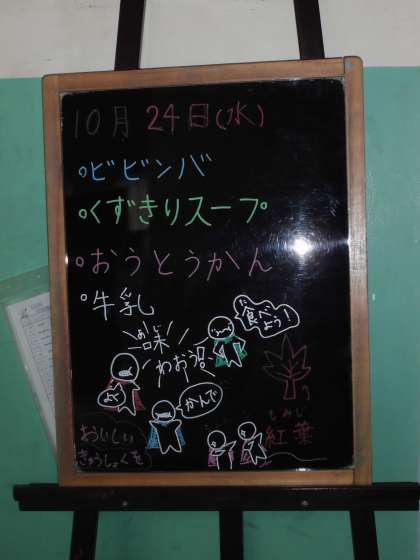 10月 24日(水)
°ビビンバ
°くずきりスープ
°おうとうかん
°牛乳
あじ
味
わおう
た
食べ
よう!
よく
かんで
もみじ
紅葉
おいしい
きゅうしょくを